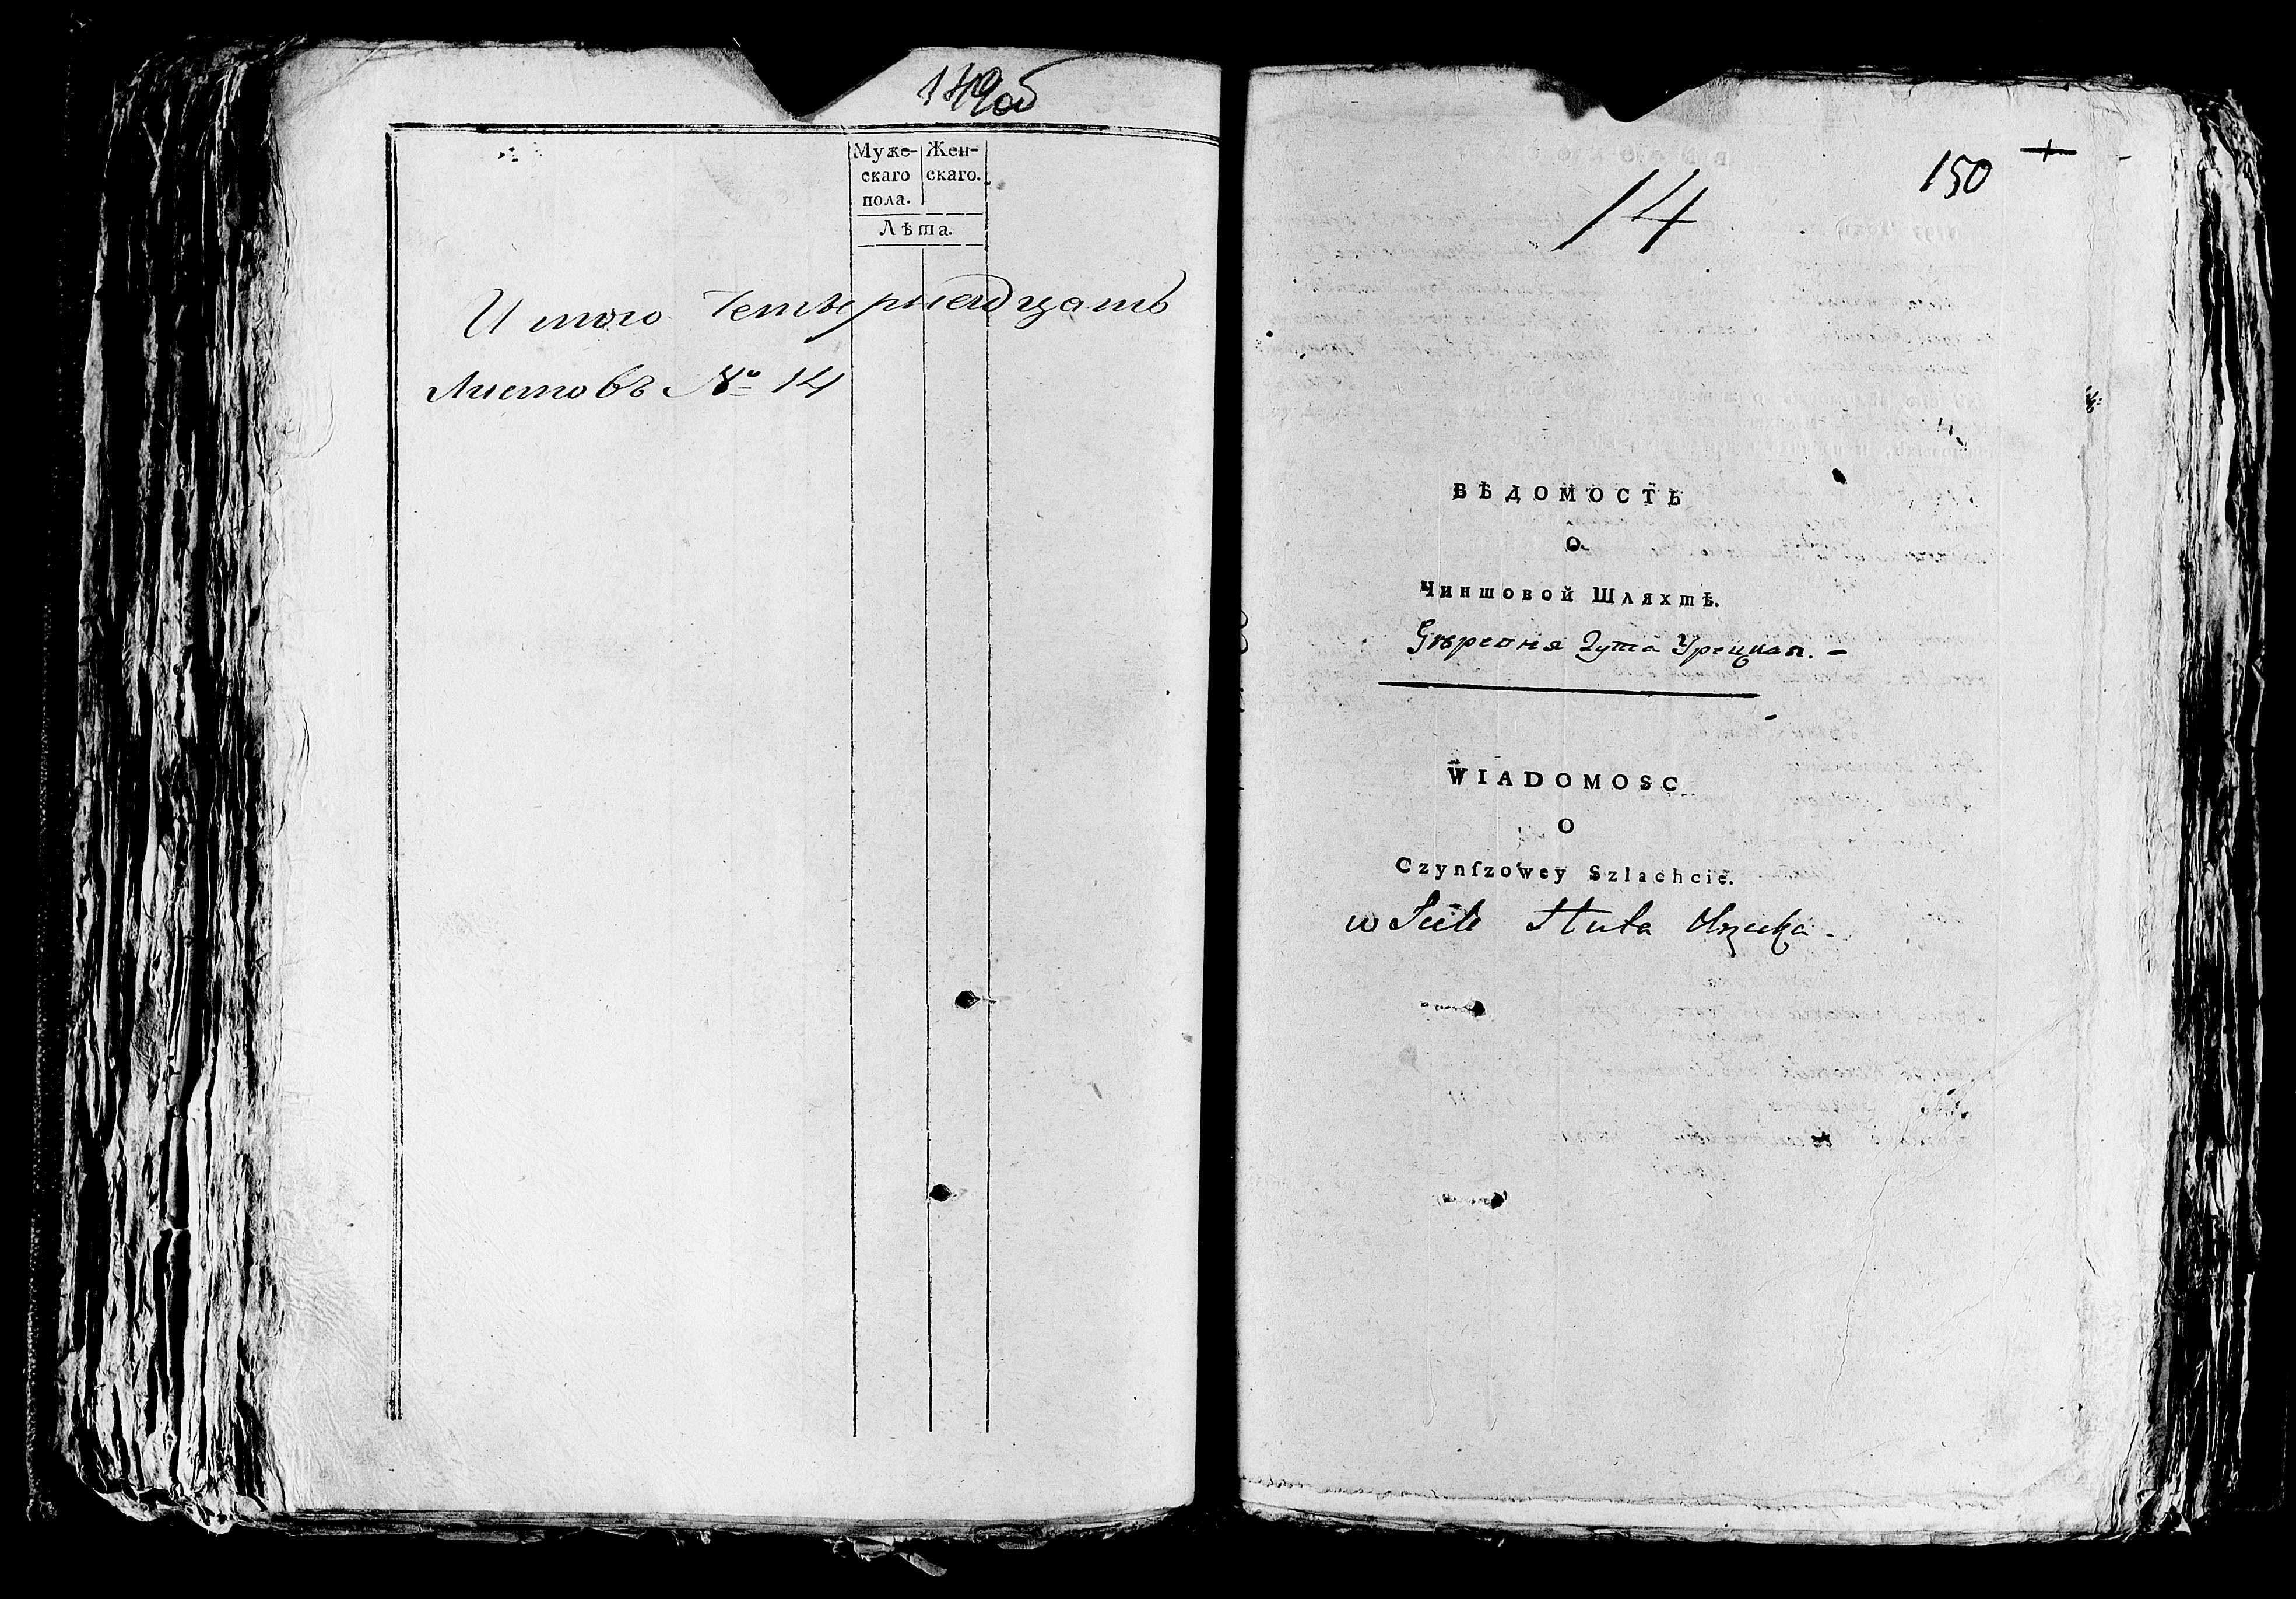 149об
Муже- Жен-
скаго скаго.
пола.
Лѣта.
Итого Четырнадцать
Листовъ № 14
150
14
ВѢДОМОСТЬ
О
Чиншовой Шляхтѣ.
Деревня Гута Урецкая. -
WIADOMOSC
O
Czynſzowey Szlachcie.
w Huta